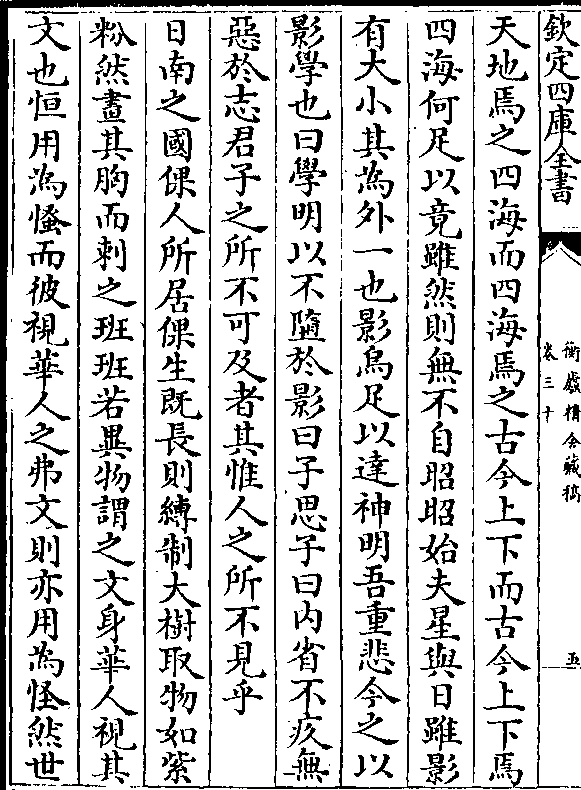 欽定四庫全書
衡廬精舍藏稿
卷三十
五
天地焉之四海而四海焉之古今上下而古今上下焉
四海何足以竟雖然則無不自昭昭始夫星與日雖影
有大小其為外一也影烏足以達神明吾重悲今之以
影學也曰學明以不隨於影曰子思子曰内省不疚無
惡於志君子之所不可及者其惟人之所不見乎
日南之國倮人所居倮生既長則縛制大樹取物如紫
粉然畫其胸而刺之班班若異物謂之文身華人視其
文也恒用為慅而彼視華人之弗文則亦用為怪然世